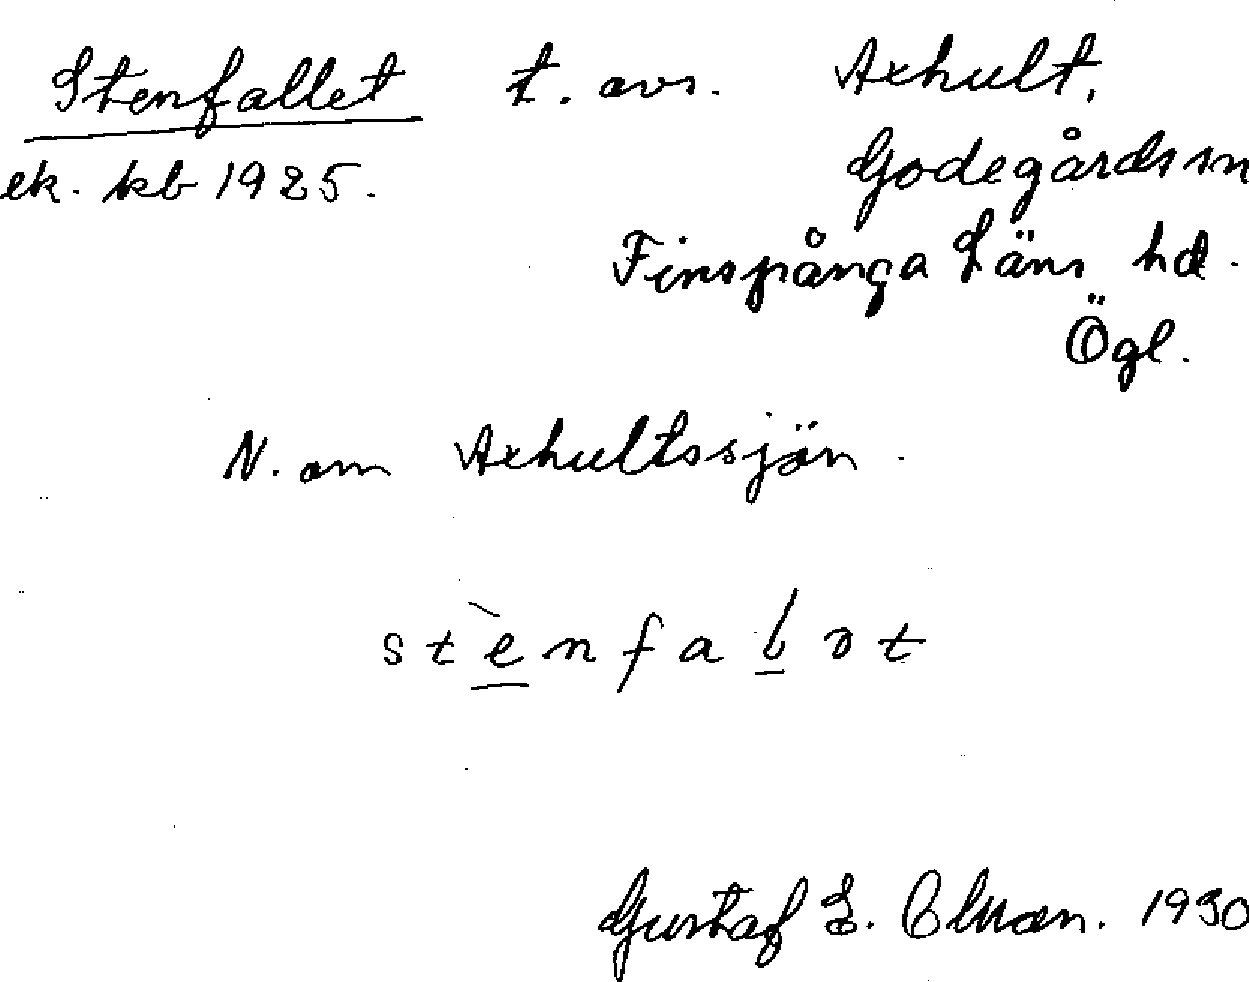 Stenfallet t. avs. Axhult,
ek. kb 1925. Godegårds sn
Finspånga Läns hd.
Ögl.
N. om Axhultssjön.
Gustaf E. 1930